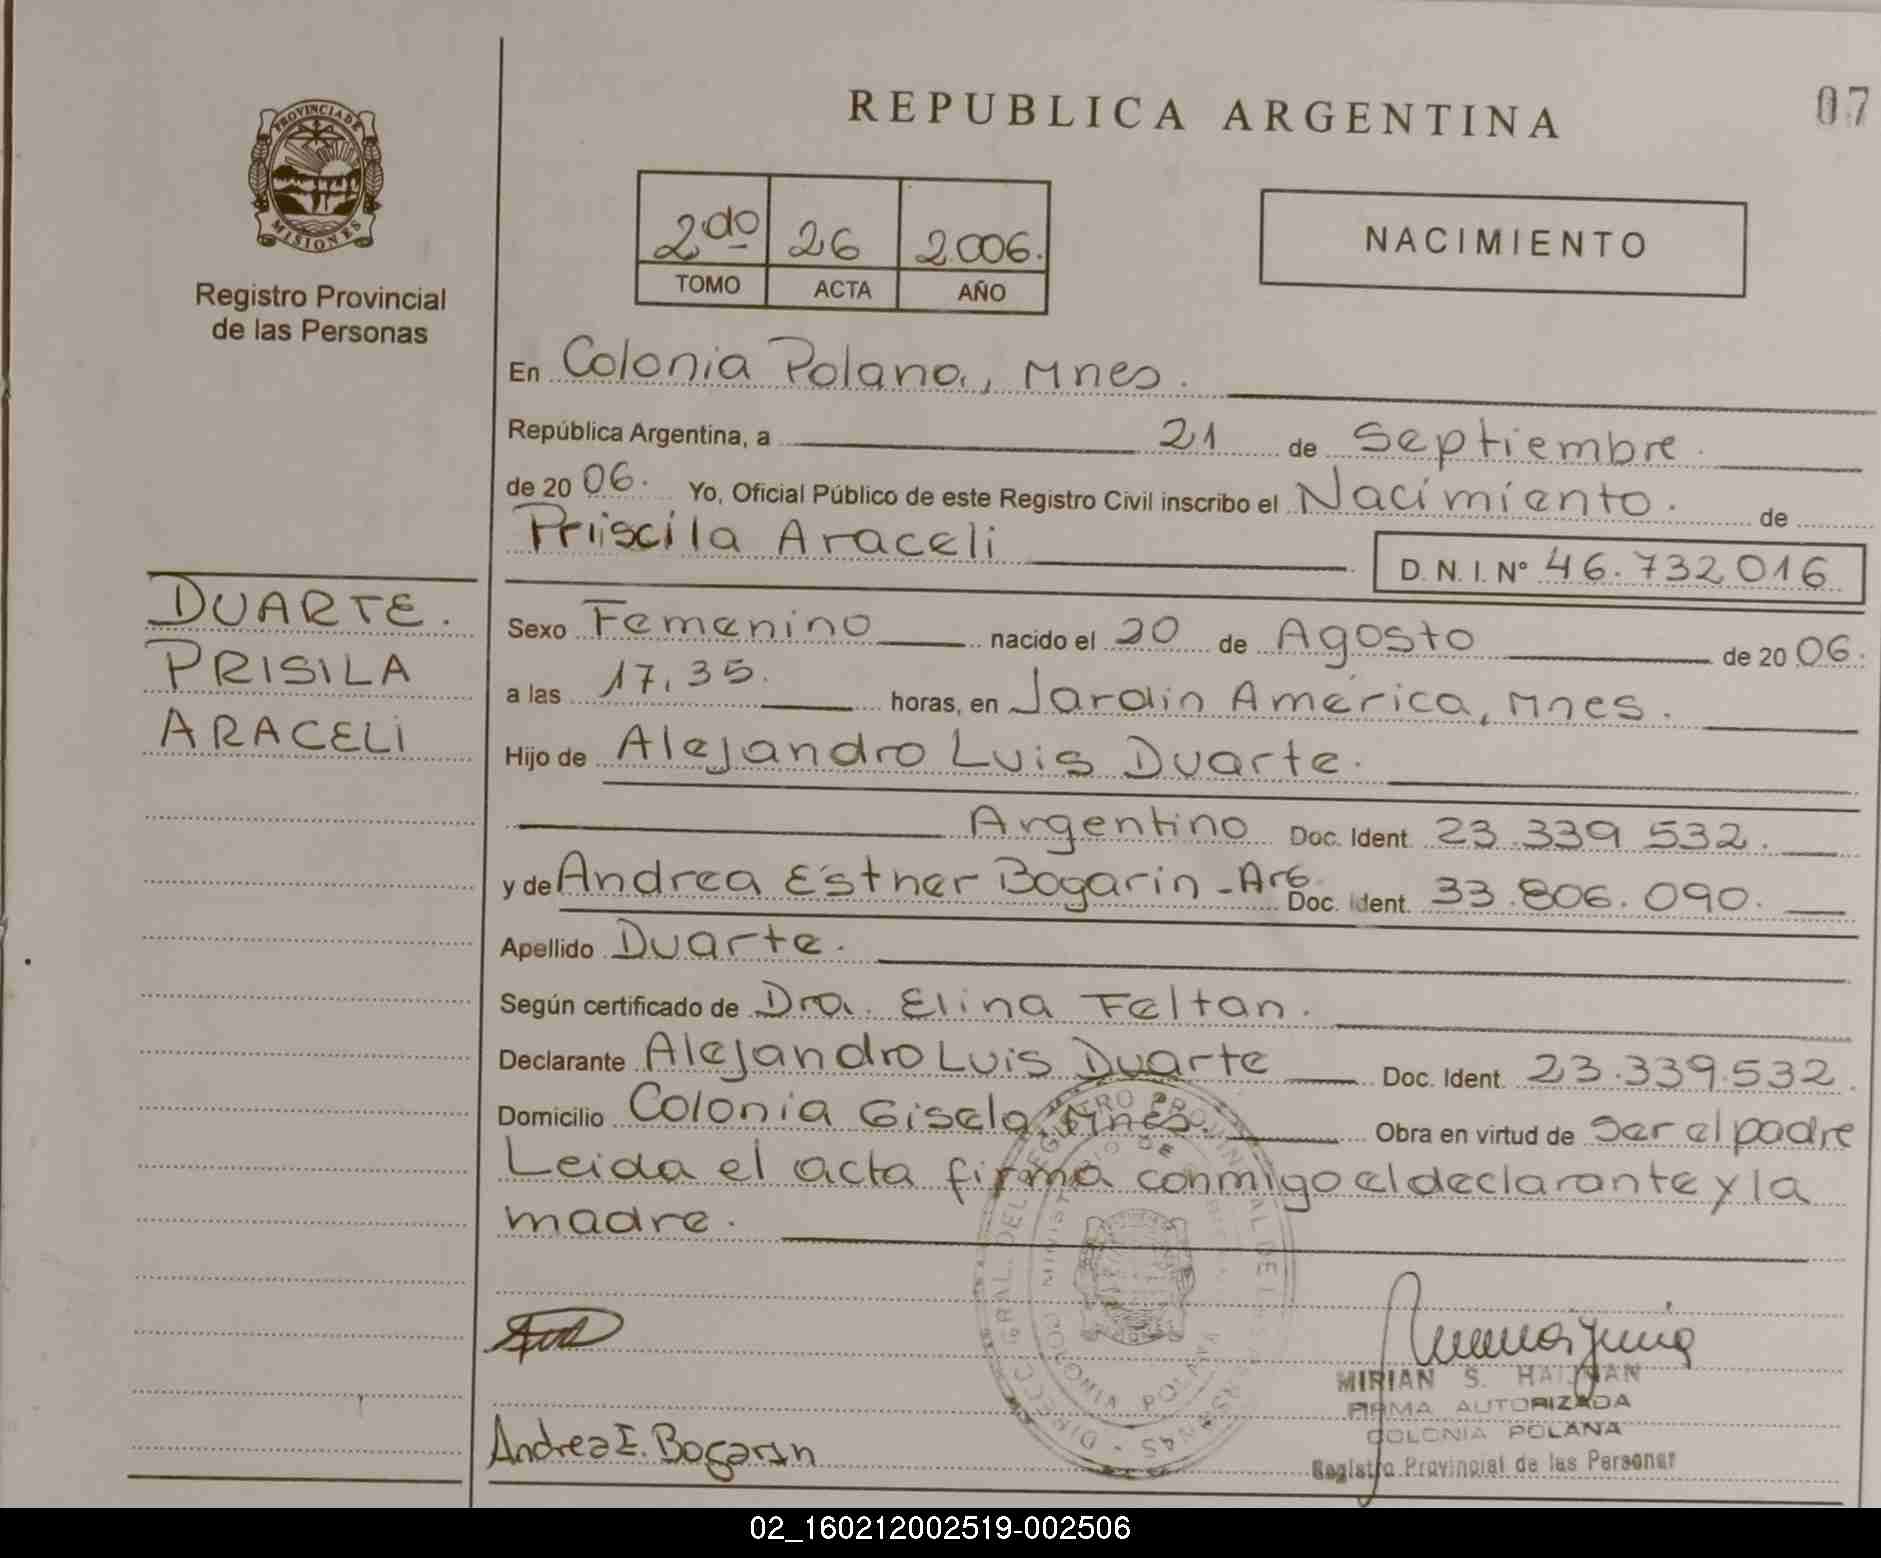 REPUBLICA ARGENTINA
07
PROVINCIA DE
MISIONES
Registro Provincial
de las Personas
2do 26 2.006.
TOMO ACTA AÑO
NACIMIENTO
En Colonia Polana, Mnes.
República Argentina, a 21 de Septiembre.
de 2006. Yo, Oficial Público de este Registro Civil inscribo el Nacimiento. de
Priiscila Araceli
D. N. I. Nº 46.732.016
DUARTE.
PRISILA
ARACELI
Sexo Femenino nacido el 20 de Agosto de 2006.
a las 17,35. horas, en Jardín América, Mnes.
Hijo de Alejandro Luis Duarte.
Argentino Doc. Ident. 23.339.532.
y de Andrea Esther Bogarin - Arg. Doc. Ident. 33.806.090.
Apellido Duarte.
Según certificado de Dra. Elina Feltan.
Declarante Alejandro Luis Duarte Doc. Ident. 23.339.532.
Domicilio Colonia Gisela, Mnes. Obra en virtud de Ser el padre
Leida el acta firma conmigo el declarante y la
madre.
COLONIA POLANA
MIRIAN S. HAIJNAN
FIRMA AUTORIZADA
COLONIA POLANA
Registro Provincial de las Personas
Andrea E. Bogarin
02_160212002519-002506